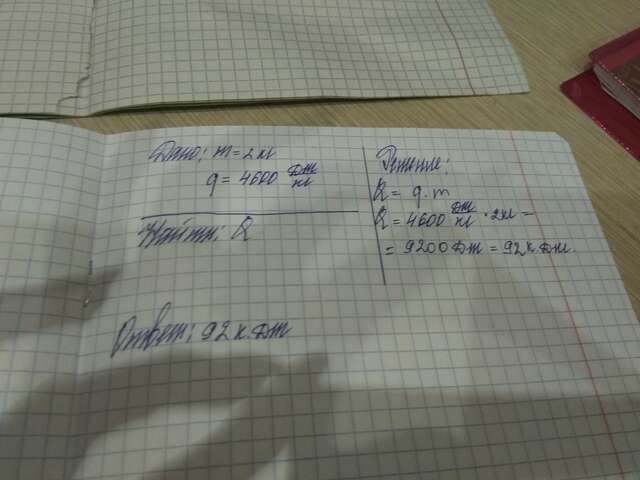 Дано: m = 2 кг
q = 4600 Дж/кг
Найти: Q
Решение:
Q = q · m
Q = 4600 Дж/кг · 2кг =
= 9200 Дж = 92к.Дж.
Ответ: 92к.Дж